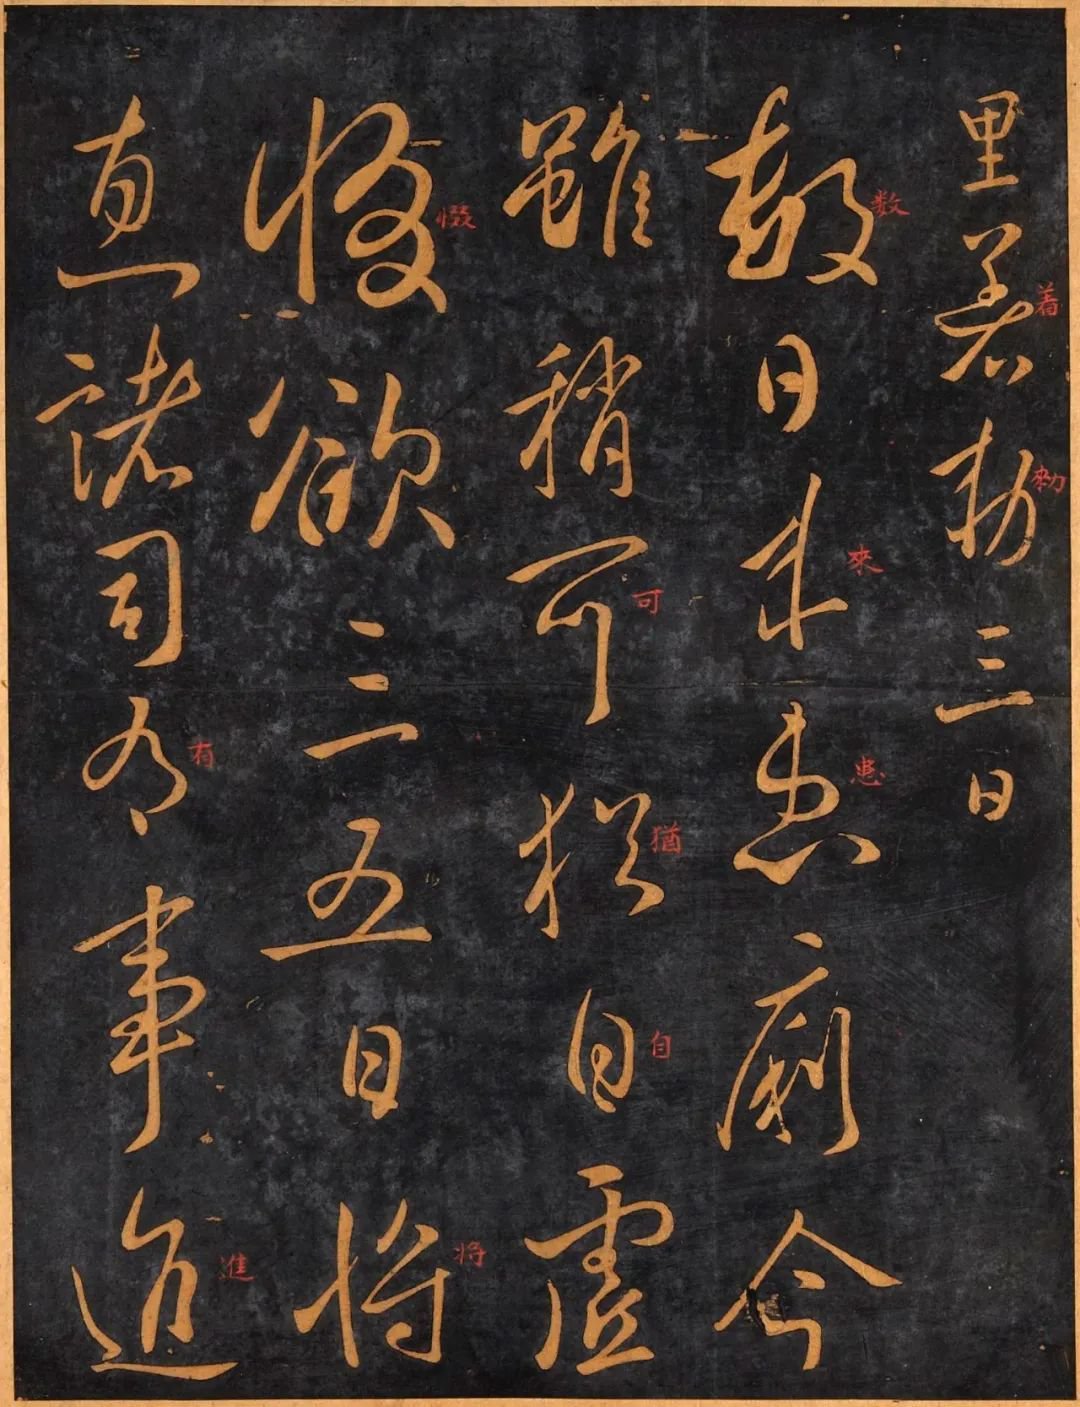 里著勅三日
數日来患痢今
雖稍可猶自虛
惙欲三五日將
息諸司有事進
着
勑
数
來
患
可
猶
自
惙
将
有
進